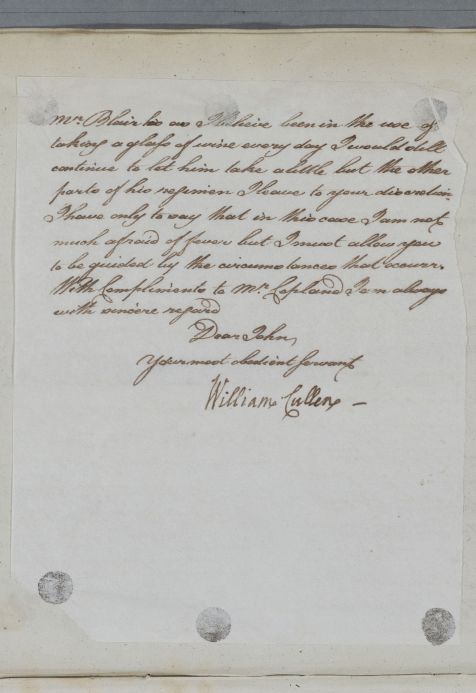 Mr. Blair has as I believe been in the use of
taking a glass of wine every day I would still
continue to let him take a little but the other
parts of his regimen I leave to your discretion.
I have only to say that in this case I am not
much afraid of fever but I must allow you
to be guided by the circumstances that occurr.
With Compliments to Mr. Copland I am always
with sincere regard
Dear John,
Your most obedient servant
William Cullen —